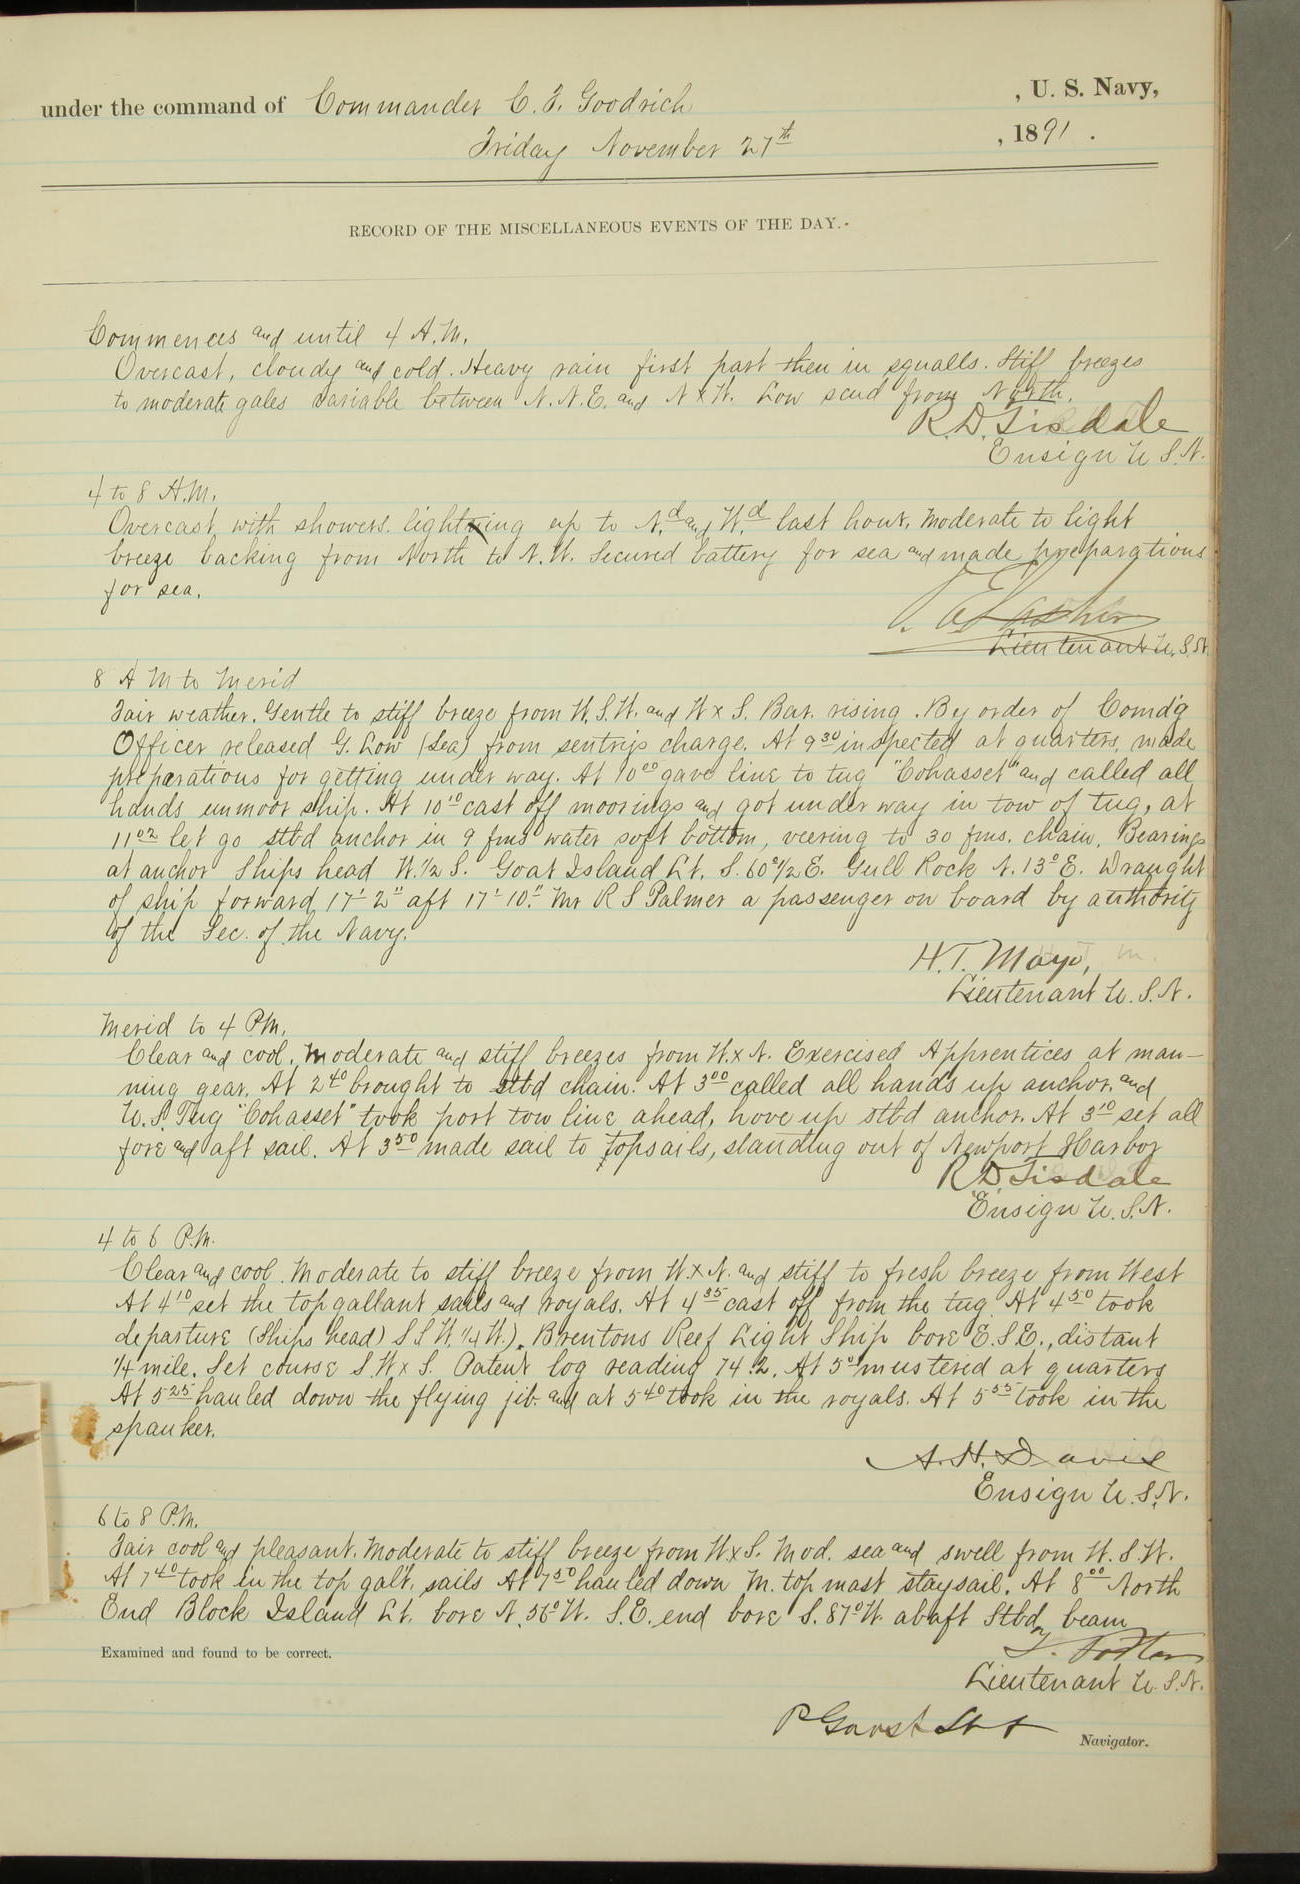 under the command of Commander C. F. Goodrich , U. S. Navy,
Friday November 27th , 1891 .
RECORD OF THE MISCELLANEOUS EVENTS OF THE DAY.
Commences and until 4 A.M.
Overcast, cloudy and cold. Heavy rain first part then in squalls. Stiff breezes
to moderate gales variable between N.N.E. and N x W. Low scud from North.
R. D. Tisdale
Ensign U. S. N.
4 to 8 A.M.
Overcast with showers. lightning up to N.d and W.d last hour. Moderate to light
breeze backing from North to N.W. Secured battery for sea and made preparations
for sea.
Lieutenant U. S. N.
8 A M to Merid
Fair weather. Gentle to stiff breeze from W.S.W. and W x S. Bar. rising. By order of Comd'g
Officer released G. Low (Sea) from sentrys charge. At 9 30 inspected at quarters, made
preparations for getting under way. At 10 00 gave line to tug "Cohasset" and called all
hands unmoor ship. At 10 10 cast off moorings and got under way in tow of tug, at
11 02 let go stbd anchor in 9 fms water soft bottom, veering to 30 fms. chain. Bearings
at anchor Ships head W. 1/2 S. Goat Island Lt. S. 60° 1/2 E. Gull Rock N. 13° E. Draught
of ship forward 17' 2" aft 17' 10". Mr R S Palmer a passenger on board by authority
of the Sec. of the Navy.
H. T. Mayo,
Lieutenant U. S. N.
Merid to 4 P.M.
Clear and cool. Moderate and stiff breezes from W. x N. Exercised Apprentices at man-
ning gear. At 2 40 brought to stbd chain. At 3 00 called all hands up anchor. and
U. S. Tug "Cohasset" took port tow line ahead, hove up stbd anchor. At 3 10 set all
fore and aft sail. At 3 50 made sail to topsails, standing out of Newport Harbor
R D Tisdale
Ensign U. S. N.
4 to 6 P.M.
Clear and cool. Moderate to stiff breeze from W. x N. and stiff to fresh breeze from West
At 4 10 set the topgallant sails and royals. At 4 35 cast off from the tug. At 4 50 took
departure (Ships head) S S W. 1/4 W.). Brentons Reef Light Ship bore E. S. E., distant
1/4 mile. Set course S. W x S. Patent log reading 74.2. At 5 0 mustered at quarters
At 5 25 hauled down the flying jib and at 5 40 took in the royals. At 5 55 took in the
spanker.
A. H. Davis
Ensign U. S. N.
6 to 8 P.M.
Fair cool and pleasant. Moderate to stiff breeze from W x S. Mod. sea and swell from W. S. W.
At 7 40 took in the top gal't. sails At 7 50 hauled down M. top mast staysail. At 8 00 North
End Block Island Lt. bore N. 56° W. S. E. end bore S. 87° W. abaft Stbd beam
Lieutenant U. S. N.
Examined and found to be correct.
P Garst Lt
Navigator.